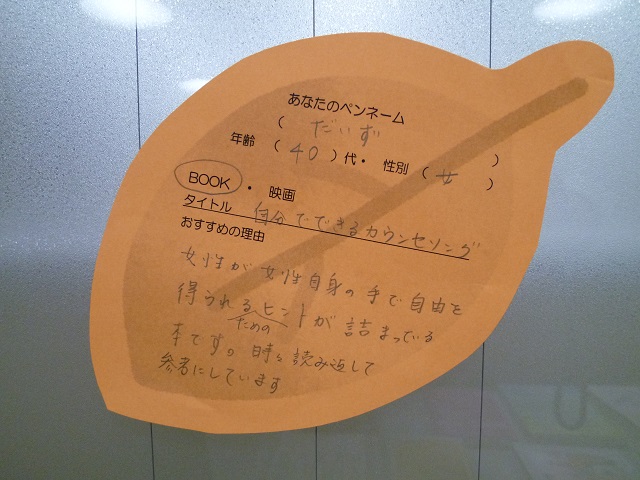 あなたのペンネーム
( だいず )
年齢 ( 40 ) 代・ 性別 ( 女 )
BOOK ・ 映画
タイトル 自分でできるカウンセリング
おすすめの理由
女性が女性自身の手で自由を
得られるヒントが詰まっている
ための
本です。時々読み返して
参考にしています